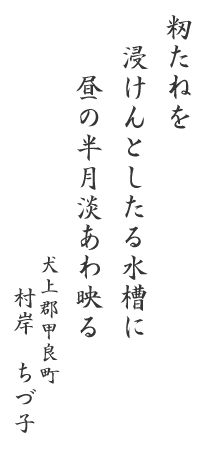 籾たねを
浸けんとしたる水槽に
昼の半月淡あわ映る
犬上郡甲良町
村岸　ちづ子